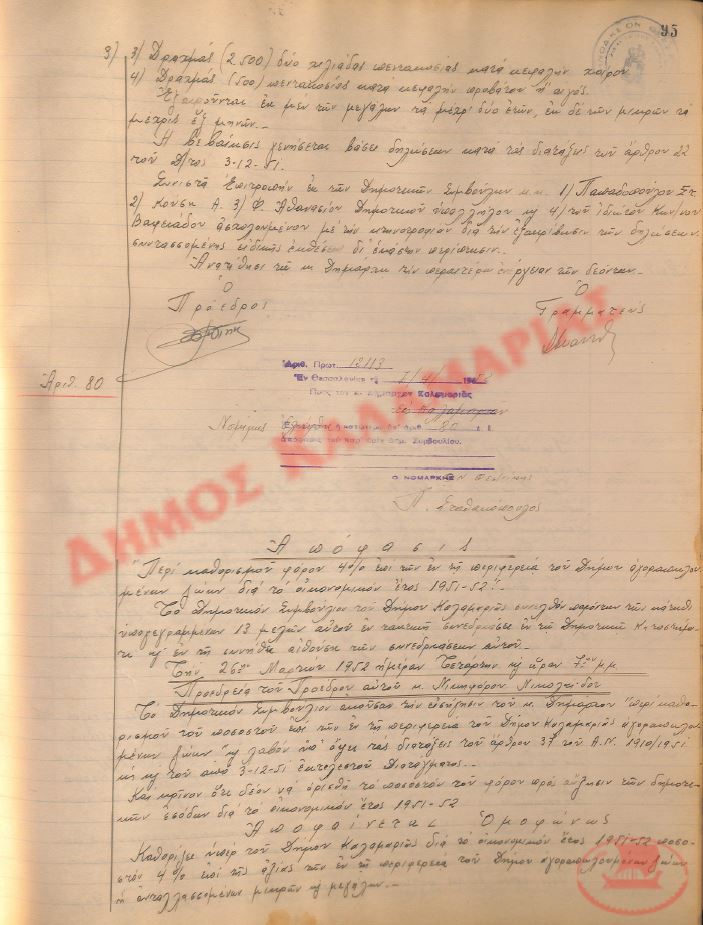 95
3) 3) Δραχμάς (2.500) δύο χιλιάδας πεντακοσίας κατά κεφαλήν χοίρου.
4) Δραχμάς (500) πεντακοσίας κατά κεφαλήν προβάτου ή αιγός.
Εξαιρούνται εκ μεν των μεγάλων τα μέχρι δύο ετών, εκ δε των μικρών τα
μέχρις έξ μηνών.
Η βεβαίωσις γενήσεται βάσει δηλώσεων κατά τας διατάξεις του άρθρου 22
του Δ/τος 3-12-51.
Συνιστά Επιτροπήν εκ των Δημοτικών Συμβούλων κ.κ. 1) Παπαδοπούλου Στ.
2) Κούση Α. 3) Φ. Αθανασίου Δημοτικού υπαλλήλου και 4) του ιδιώτου Κων/νου
Βαφειάδου ασχολουμένου με την κτηνοτροφίαν διά την εξακρίβωσιν των δηλώσεων
συντασσομένης ειδικής εκθέσεως δι' εκάστην περίπτωσιν.
Ανατίθησι τω κ. Δημάρχω την περαιτέρω ενέργειαν των δεόντων.
Ο Ο
Πρόεδρος Γραμματεύς
Αριθ. 80
Αριθ. Πρωτ. 12113
Εν Θεσσαλονίκη τη 1/4/1952
Προς τον κ. Δήμαρχον Καλαμαριάς
εις Καλαμαριάν
Νομίμως ελήφθη η κατωτέρω υπ' αριθ. 80 ε. έ.
απόφασις του παρ' υμίν Δημ. Συμβουλίου.
Ο ΝΟΜΑΡΧΗΣ
Π. Σταθακόπουλος
ΔΗΜΟΣ ΚΑΛΑΜΑΡΙΑΣ
Απόφασις
"Περί καθορισμού φόρου 4% επί των εν τη περιφερεία του Δήμου αγοραπωλου-
μένων ζώων διά το οικονομικόν έτος 1951-52".
Το Δημοτικόν Συμβούλιον του Δήμου Καλαμαριάς συνελθόν παρόντων των κάτωθι
υπογεγραμμένων 13 μελών αυτού εν τακτική συνεδριάσει εν τω Δημοτικώ Καταστήμα-
τι και εν τη συνήθει αιθούση των συνεδριάσεων αυτού.
Την 26ην Μαρτίου 1952 ημέραν Τετάρτην και ώραν 7ην μ.μ.
Προεδρεία του Προέδρου αυτού κ. Νικηφόρου Νικολαΐδου
Το Δημοτικόν Συμβούλιον ακούσαν την εισήγησιν του κ. Δημάρχου "περί καθο-
ρισμού του ποσοστού επί των εν τη περιφερεία του Δήμου Καλαμαριάς αγοραπωλου-
μένων ζώων" και λαβόν υπ' όψει τας διατάξεις του άρθρου 37 του Α.Ν. 1910/1951
ως και του από 3-12-51 εκτελεστού Διατάγματος.
Και κρίνον ότι δέον να ορισθή το ποσοστόν του φόρου προς αύξησιν των δημοτι-
κών εσόδων διά το οικονομικόν έτος 1951-52
Αποφαίνεται Ομοφώνως
Καθορίζει υπέρ του Δήμου Καλαμαριάς διά το οικονομικόν έτος 1951-52 ποσο-
στόν 4% επί της αξίας των εν τη περιφερεία του Δήμου αγοραπωλουμένων ζώων
ή ανταλλασσομένων μικρών και μεγάλων.